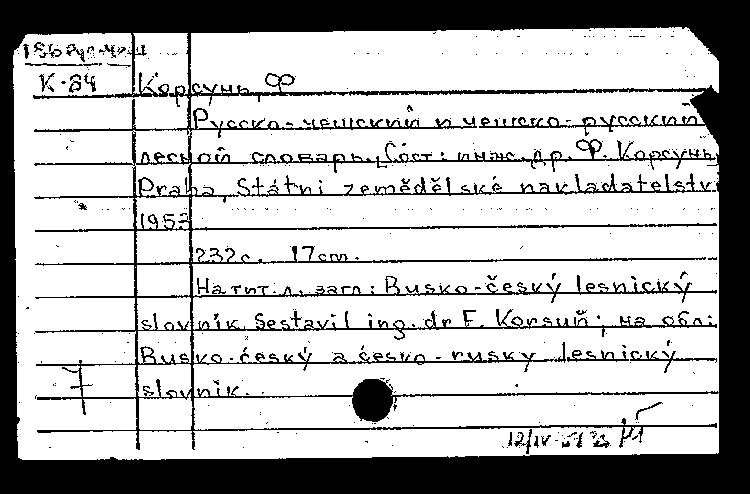 186 Рус-Чеш
К-84
Корсунь, Ф
Русско-чешский и чешско-русский
лесной словарь. [Сост: инж. др. Ф. Корсунь,
Praha, Státni zemědělské nakladatelstvi
1953
232с. 17cm.
На тит. л. загл: Rusko-český lesnický
slovnik. Sestavil ing. dr F. Korsuň; на обл:
Rusko-český a česko-rusky lesnický
slovnik.